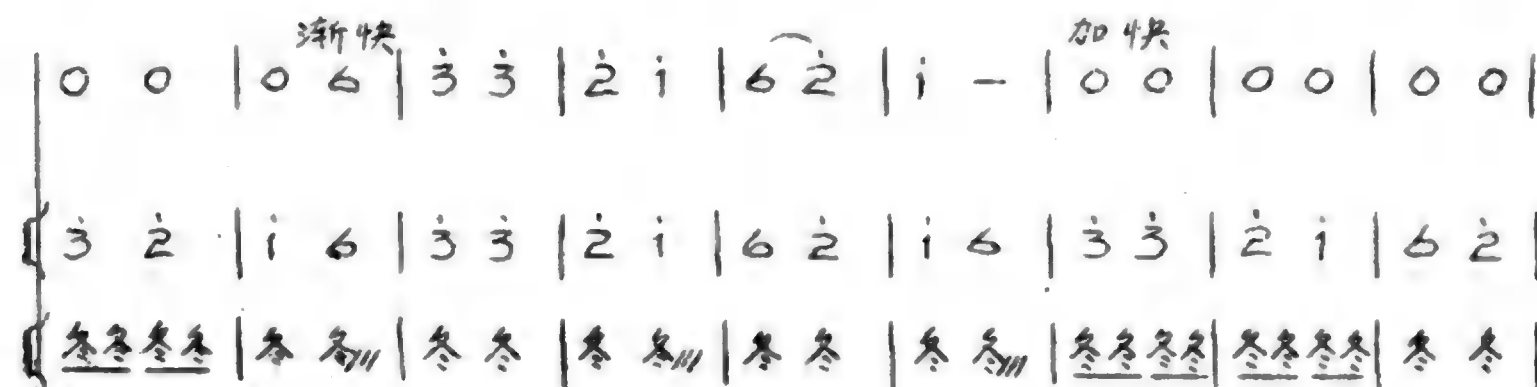 渐快 加快
0 0 | 0 6 | 3̇ 3̇ | 2̇ 1̇ | 6 2̇ | 1̇ - | 0 0 | 0 0 | 0 0 |
3̇ 2̇ | 1̇ 6 | 3̇ 3̇ | 2̇ 1̇ | 6 2̇ | 1̇ 6 | 3̇ 3̇ | 2̇ 1̇ | 6 2̇ |
冬冬冬冬 | 冬 冬/// | 冬 冬 | 冬 冬/// | 冬 冬 | 冬 冬/// | 冬冬冬冬 | 冬冬冬冬 | 冬 冬 |